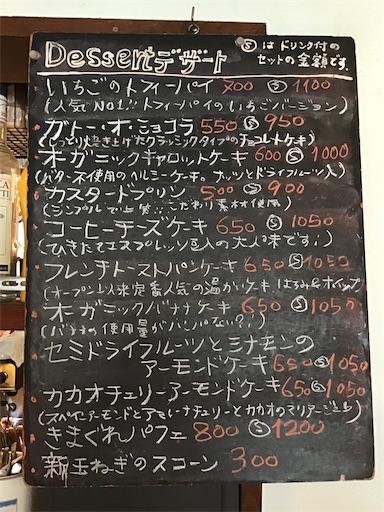 Dessert デザート
Ⓢはドリンク付の
セットの金額です。
いちごのトフィーパイ 700 Ⓢ 1100
(人気NO1!! トフィーパイのいちごバージョン)
ガトー・オ・ショコラ 550 Ⓢ 950
(しっとり焼き上げたクラシックタイプのチョコレートケーキ)
オーガニックキャロットケーキ 600 Ⓢ 1000
(バター不使用のヘルシーケーキ。ナッツとドライフルーツ入)
カスタードプリン 500 Ⓢ 900
(シンプルで上質。こだわり素材使用)
コーヒーチーズケーキ 650 Ⓢ 1050
(ひきたてエスプレッソ豆入の大人味です!)
フレンチトーストパンケーキ 650 Ⓢ 1050
(オープン以来定番人気の温かいケーキ はちみつ&ホイップ)
オーガニックバナナケーキ 650 Ⓢ 1050
(バナナの使用量がハンパない?!)
セミドライフルーツとシナモンの
アーモンドケーキ 650 Ⓢ 1050
カカオチェリーアーモンドケーキ 650 Ⓢ 1050
(スペインアーモンドとアマレーナチェリーとカカオのマリアージュ)
きまぐれパフェ 800 Ⓢ 1200
新玉ねぎのスコーン 300